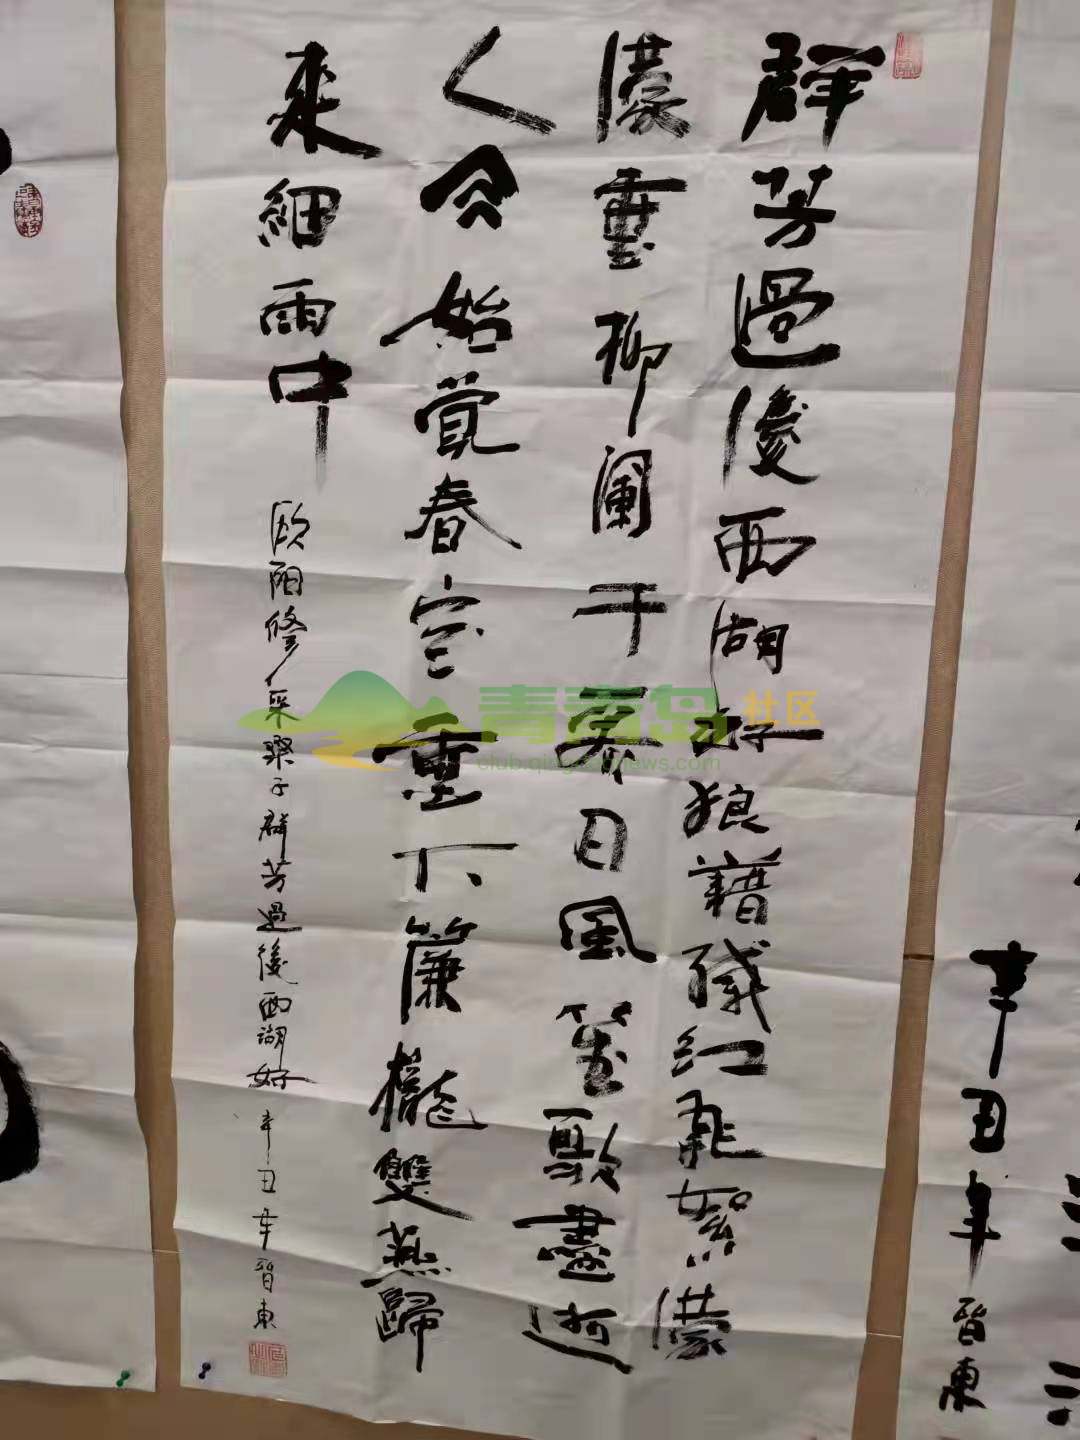 群芳過後西湖好狼藉殘紅飛絮濛
濛垂柳闌干日風笙歌盡
人始覺春空垂下簾櫳雙燕歸
來細雨中
欧阳修采桑子群芳過後西湖好
辛丑年晉東
辛丑年晉東
青青岛社区
club.qingdaonews.com